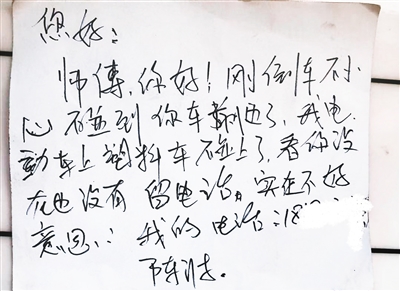 您好:
师傅,你好!刚倒车不小
心碰到你车了,我电
动车上塑料车碰上了,看你没
在也没有留电话,实在不好
意思:我的电话:18
陈